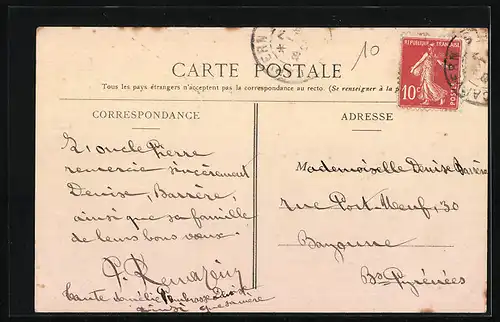 10
CARTE POSTALE
RÉPUBLIQUE FRANÇAISE
10c
POSTES
Tous les pays étrangers n'acceptent pas la correspondance au recto. (Se renseigner à la p
CORRESPONDANCE
L'oncle Pierre
remercie sincèrement
Denise, Barrère,
ainsi que sa famille
de leurs bons vœux.
P.
Tante
ainsi que sa mère
ADRESSE
Mademoiselle Denise Barrère
rue Port Neuf, 30
Bayonne
Bses Pyrénées